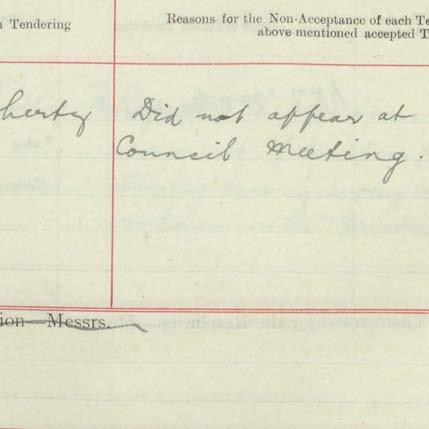 Tendering
Reasons for the Non-Acceptance of each
above mentioned accepted
Did not appear at
Council Meeting.
Messrs.